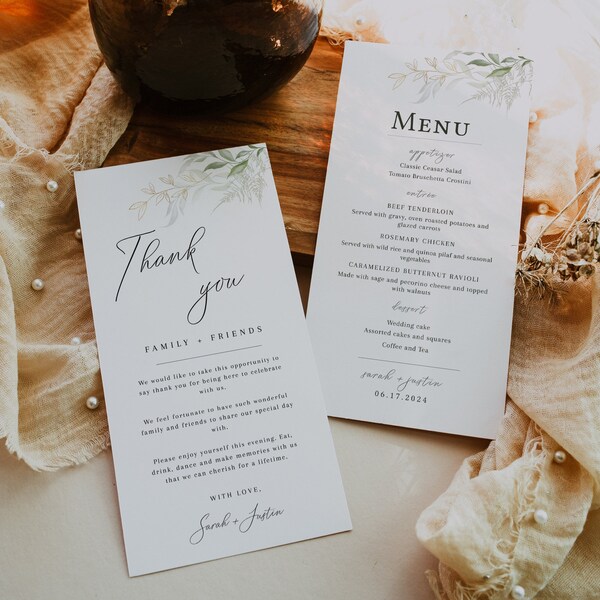 Thank
you
FAMILY + FRIENDS
We would like to take this opportunity to
say thank you for being here to celebrate
with us.
We feel fortunate to have such wonderful
family and friends to share our special day
with.
Please enjoy yourself this evening. Eat,
drink, dance and make memories with us
that we can cherish for a lifetime.
WITH LOVE,
Sarah + Justin
MENU
appetizer
Classic Caesar Salad
Tomain Bruschetta Crostini
entrée
BEEF TENDERLOIN
Served with gravy, oven roasted potatoes and
glazed carrots
ROSEMARY CHICKEN
Served with wild rice and quinoa pilaf and seasonal
vegetables
CARAMELIZED BUTTERNUT RAVIOLI
Made with sage and pecorino cheese and topped
with walnuts
dessert
Wedding cake
Assorted cakes and squares
Coffee and Tea
sarah + justin
06.17.2024